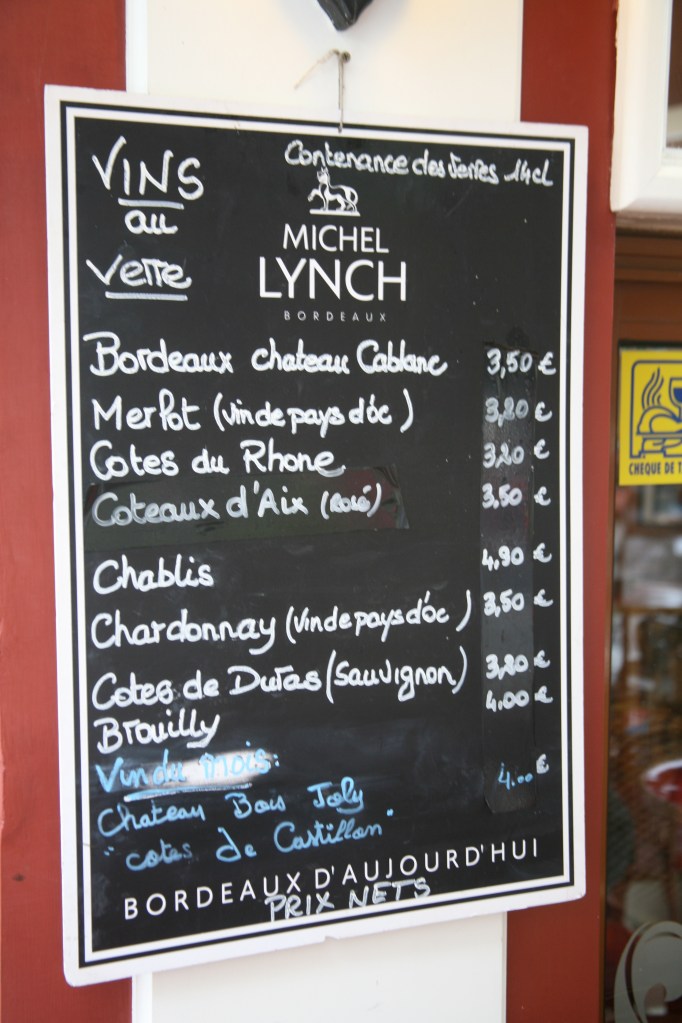 VINS
au
Verre
Contenance des Verres 14cl
MICHEL
LYNCH
BORDEAUX
Bordeaux chateau Cablanc 3,50 €
Merlot (vin de pays d'óc) 3,20 €
Cotes du Rhone 3,20 €
Coteaux d'Aix (Rosé) 3,50 €
Chablis 4,90 €
Chardonnay (Vin de pays d'óc) 3,50 €
Cotes de Duras (Sauvignon) 3,20 €
Brouilly 4.00 €
Vin du Mois: 
Chateau Bois Joly 4.00 €
"cotes de Castillon"
BORDEAUX D'AUJOURD'HUI
PRIX NETS
CHEQUE DE